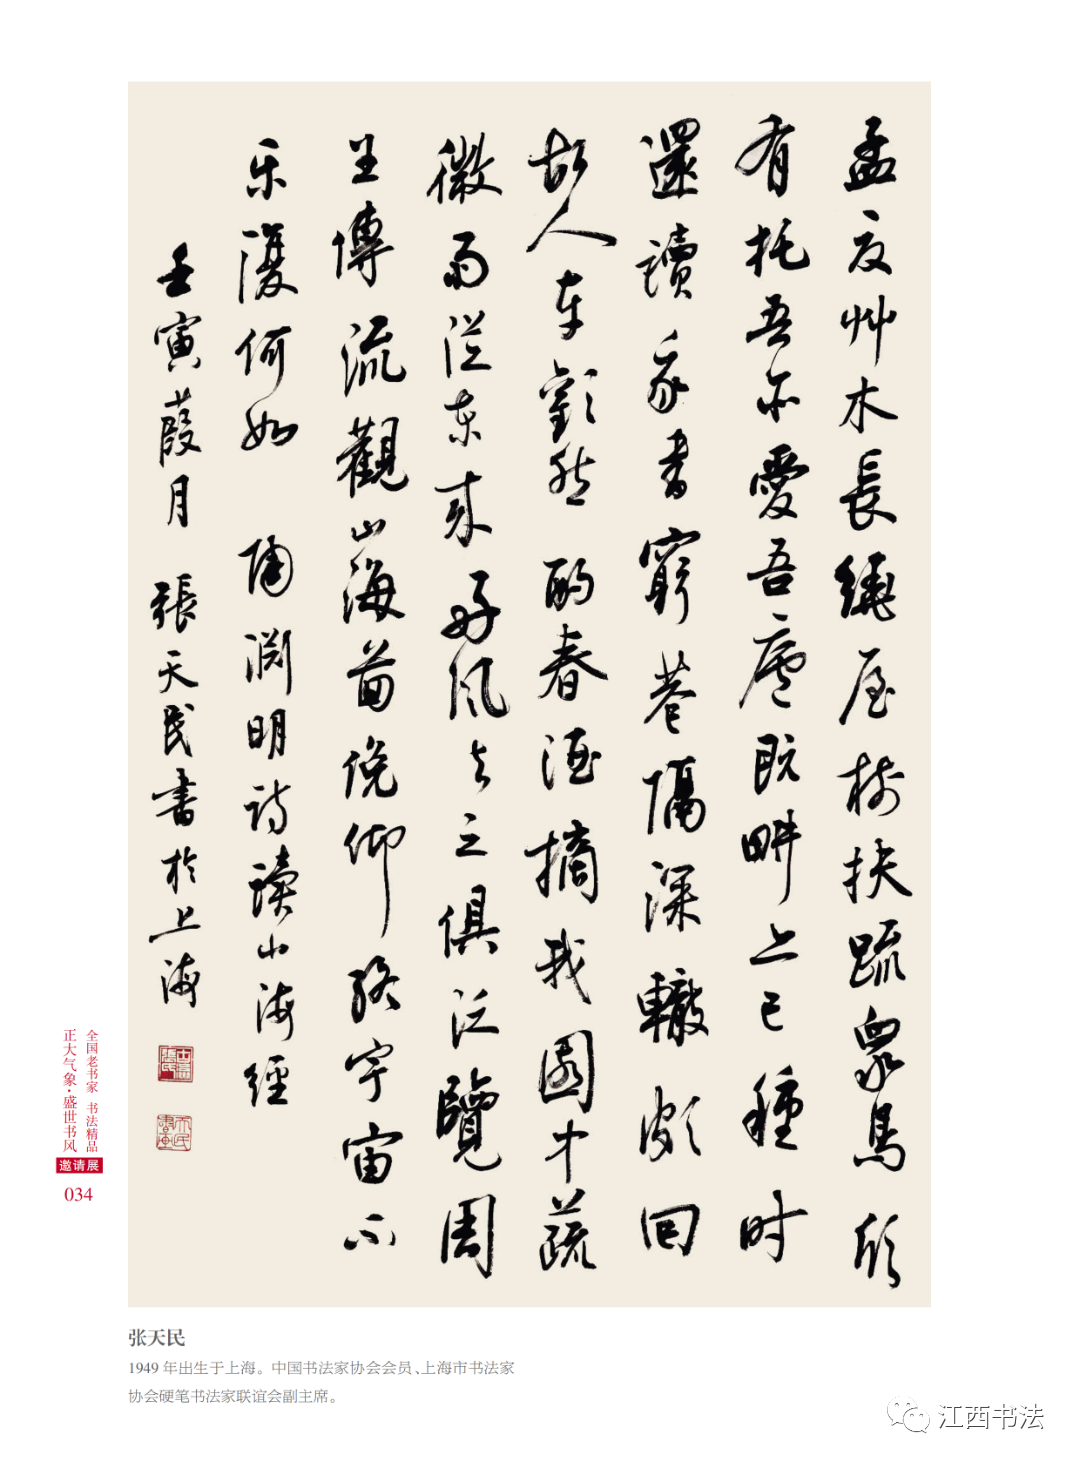 孟夏艸木長繞屋樹扶疏眾鳥欣
有托吾亦愛吾廬既畊亦已種时
還讀我書窮巷隔深轍頗回
故人車歡然酌春酒摘我園中蔬
微雨從東来好風与之俱泛覽周
王傳流觀山海圖俛仰終宇宙不
乐復何如 陶淵明詩讀山海經
壬寅葭月 張天民書於上海
全国老书家 书法精品
正大气象·盛世书风
邀请展
034
张天民
1949 年出生于上海。中国书法家协会会员、上海市书法家
协会硬笔书法家联谊会副主席。
江西书法